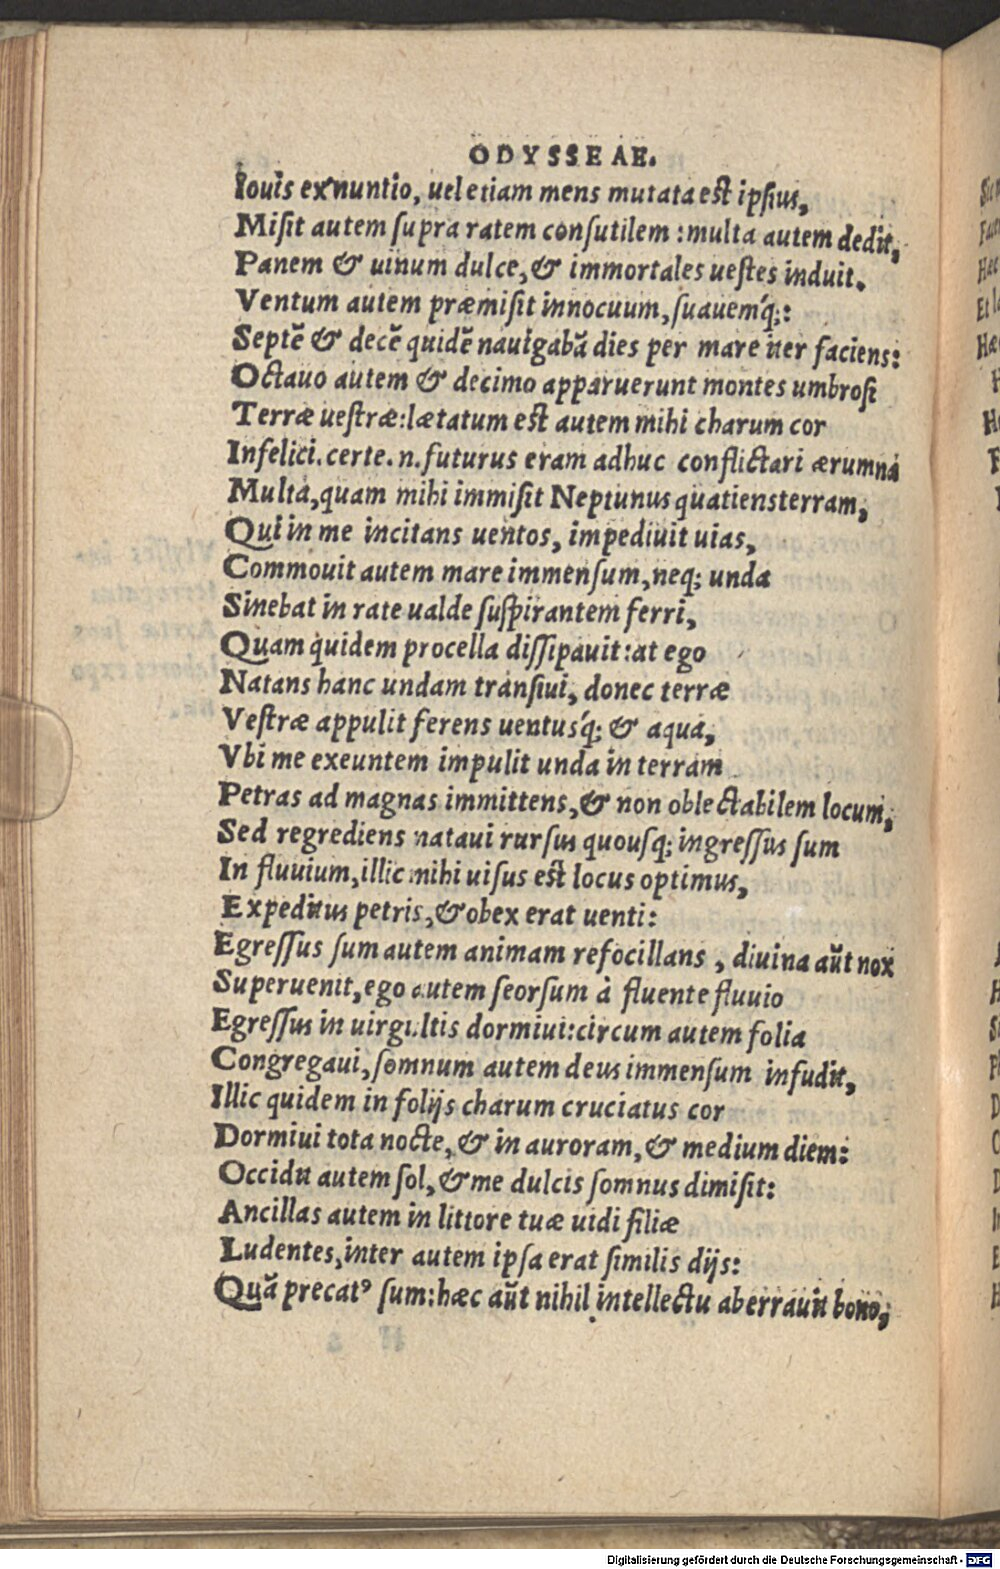 ODYSSEAE.
Iouis ex nuntio, uel etiam mens mutata est ipsius,
Misit autem supra ratem consutilem : multa autem dedit,
Panem & uinum dulce, & immortales uestes induit.
Ventum autem præmisit innocuum, suauemq́;:
Septē & decē quidē nauigabā dies per mare iter faciens:
Octauo autem & decimo apparuerunt montes umbrosi
Terræ uestræ: lætatum est autem mihi charum cor
Infelici. certe. n. futurus eram adhuc conflictari ærumna
Multa, quam mihi immisit Neptunus quatiens terram,
Qui in me incitans uentos, impediuit uias,
Commouit autem mare immensum, neq; unda
Sinebat in rate ualde suspirantem ferri,
Quam quidem procella dissipauit: at ego
Natans hanc undam transiui, donec terræ
Vestræ appulit ferens uentusq́; & aqua,
Vbi me exeuntem impulit unda in terram
Petras ad magnas immittens, & non oblectabilem locum,
Sed regrediens nataui rursus quousq; ingressus sum
In fluuium, illic mihi uisus est locus optimus,
Expeditus petris, & obex erat uenti:
Egressus sum autem animam refocillans , diuina aūt nox
Superuenit, ego autem seorsum à fluente fluuio
Egressus in uirgultis dormiui: circum autem folia
Congregaui, somnum autem deus immensum infudit,
Illic quidem in folijs charum cruciatus cor
Dormiui tota nocte, & in auroram, & medium diem:
Occidit autem sol, & me dulcis somnus dimisit:
Ancillas autem in littore tuæ uidi filiæ
Ludentes, inter autem ipsa erat similis dijs:
Quā precatꝰ sum: hæc aūt nihil intellectu aberrauit bono,
Digitalisierung gefördert durch die Deutsche Forschungsgemeinschaft - DFG